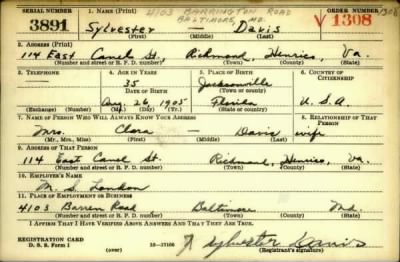 SERIAL NUMBER 1. NAME (Print) 4103 BARRINGTON ROAD ORDER NUMBER
BALTIMORE, MD.
3891 Sylvester Davis V 1308
(First) (Middle) (Last)
2. ADDRESS (Print)
114 East Canal St. Richmond, Henrico, Va.
(Number and street or R. F. D. number) (Town) (County) (State)
3. TELEPHONE 4. AGE IN YEARS 5. PLACE OF BIRTH 6. COUNTRY OF CITIZENSHIP
35 Jacksonville
DATE OF BIRTH (Town or county)
Aug. 26, 1905 Florida U. S. A.
(Exchange) (Number) (Mo.) (Day) (Yr.) (State or country)
7. NAME OF PERSON WHO WILL ALWAYS KNOW YOUR ADDRESS 8. RELATIONSHIP OF THAT PERSON
Mrs. Clara Davis wife
(Mr., Mrs., Miss) (First) (Middle) (Last)
9. ADDRESS OF THAT PERSON
114 East Canal St. Richmond, Henrico, Va.
(Number and street or R. F. D. number) (Town) (County) (State)
10. EMPLOYER'S NAME
M. S. London
11. PLACE OF EMPLOYMENT OR BUSINESS
4103 Barren Road Baltimore Md.
(Number and street or R. F. D. number) (Town) (County) (State)
I AFFIRM THAT I HAVE VERIFIED ABOVE ANSWERS AND THAT THEY ARE TRUE.
REGISTRATION CARD
D. S. S. Form 1 (over) 16—17106 Sylvester Davis
(Registrant's signature)